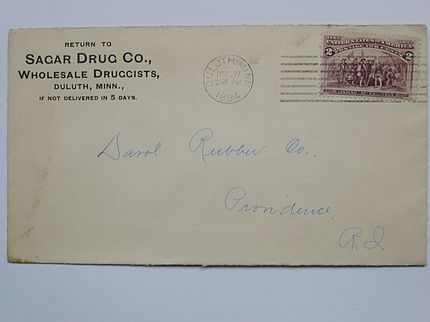 RETURN TO
SAGAR DRUG CO.,
WHOLESALE DRUGGISTS,
DULUTH, MINN.,
IF NOT DELIVERED IN 5 DAYS.
DULUTH MINN
DEC 27
1894
UNITED STATES OF AMERICA
2 2
Davol Rubber Co.,
Providence,
R.I.